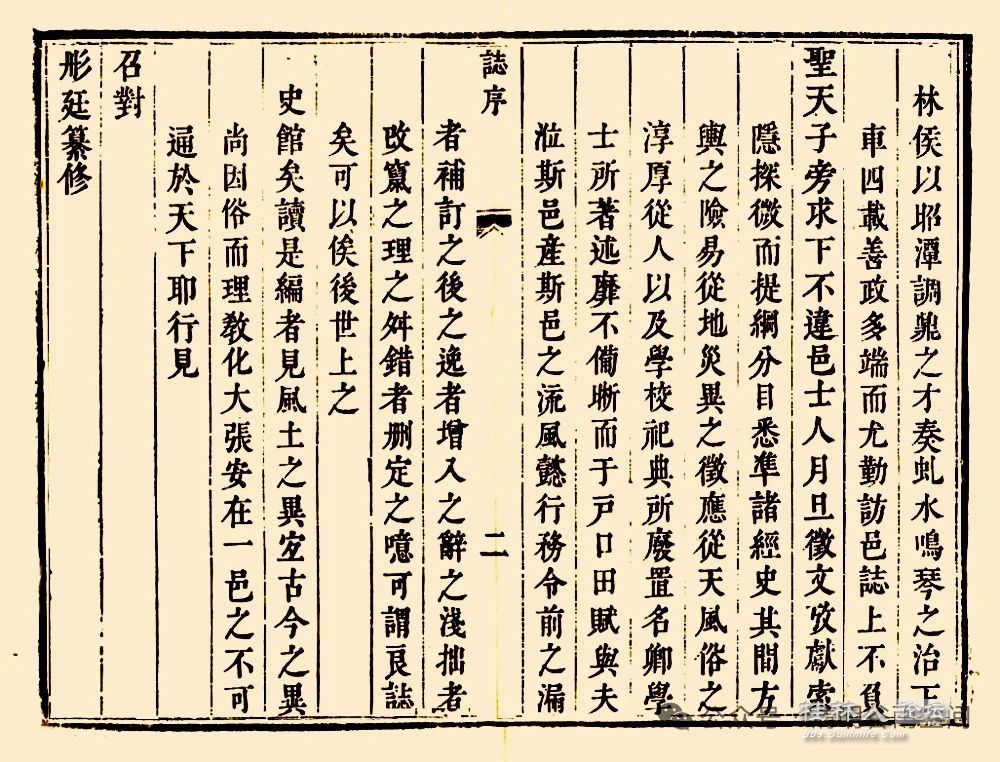 林侯以昭潭調鼎之才奏虬水鳴琴之治下
車四載善政多端而尤勤訪邑誌上不負
聖天子旁求下不違邑士人月旦徵文攷獻索
隱探微而提綱分目悉準諸經史其間方
輿之險易從地災異之徵應從天風俗之
淳厚從人以及學校祀典所廢置名卿學
士所著述靡不備晣而于戸口田賦與夫
涖斯邑産斯邑之流風懿行務令前之漏
誌序
二
者補訂之後之逸者增入之辭之淺拙者
改竄之理之舛錯者刪定之噫可謂良誌
矣可以俟後世上之
史館矣讀是編者見風土之異宐古今之異
尚因俗而理教化大張安在一邑之不可
通於天下耶行見
召對
彤廷纂修
桂林人论坛
bbs.Guilinlife.Com